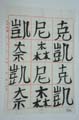 克凱克凱
尼森尼森
凱奈凱奈